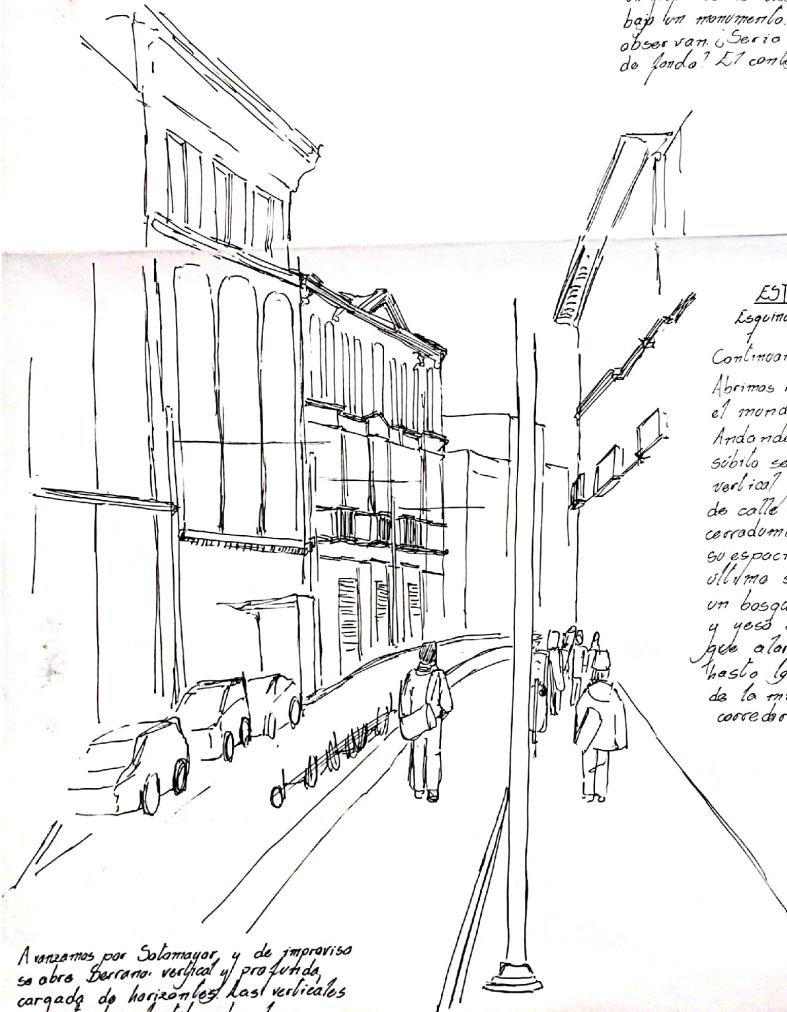 bajo un monumento.
observan. ¿Sería
de fondo? El cont
EST
Esquina
Continuan
Abrimos
el mund
Andando
súbito se
vertical
de calle
su espac
ultimo s
un bosq
y yeso
que alar
hasta la
de la m
corredor
Avanzamos por Sotomayor, y de improviso
se abre Serrano: vertical y profunda,
cargada de horizontes. Las verticales